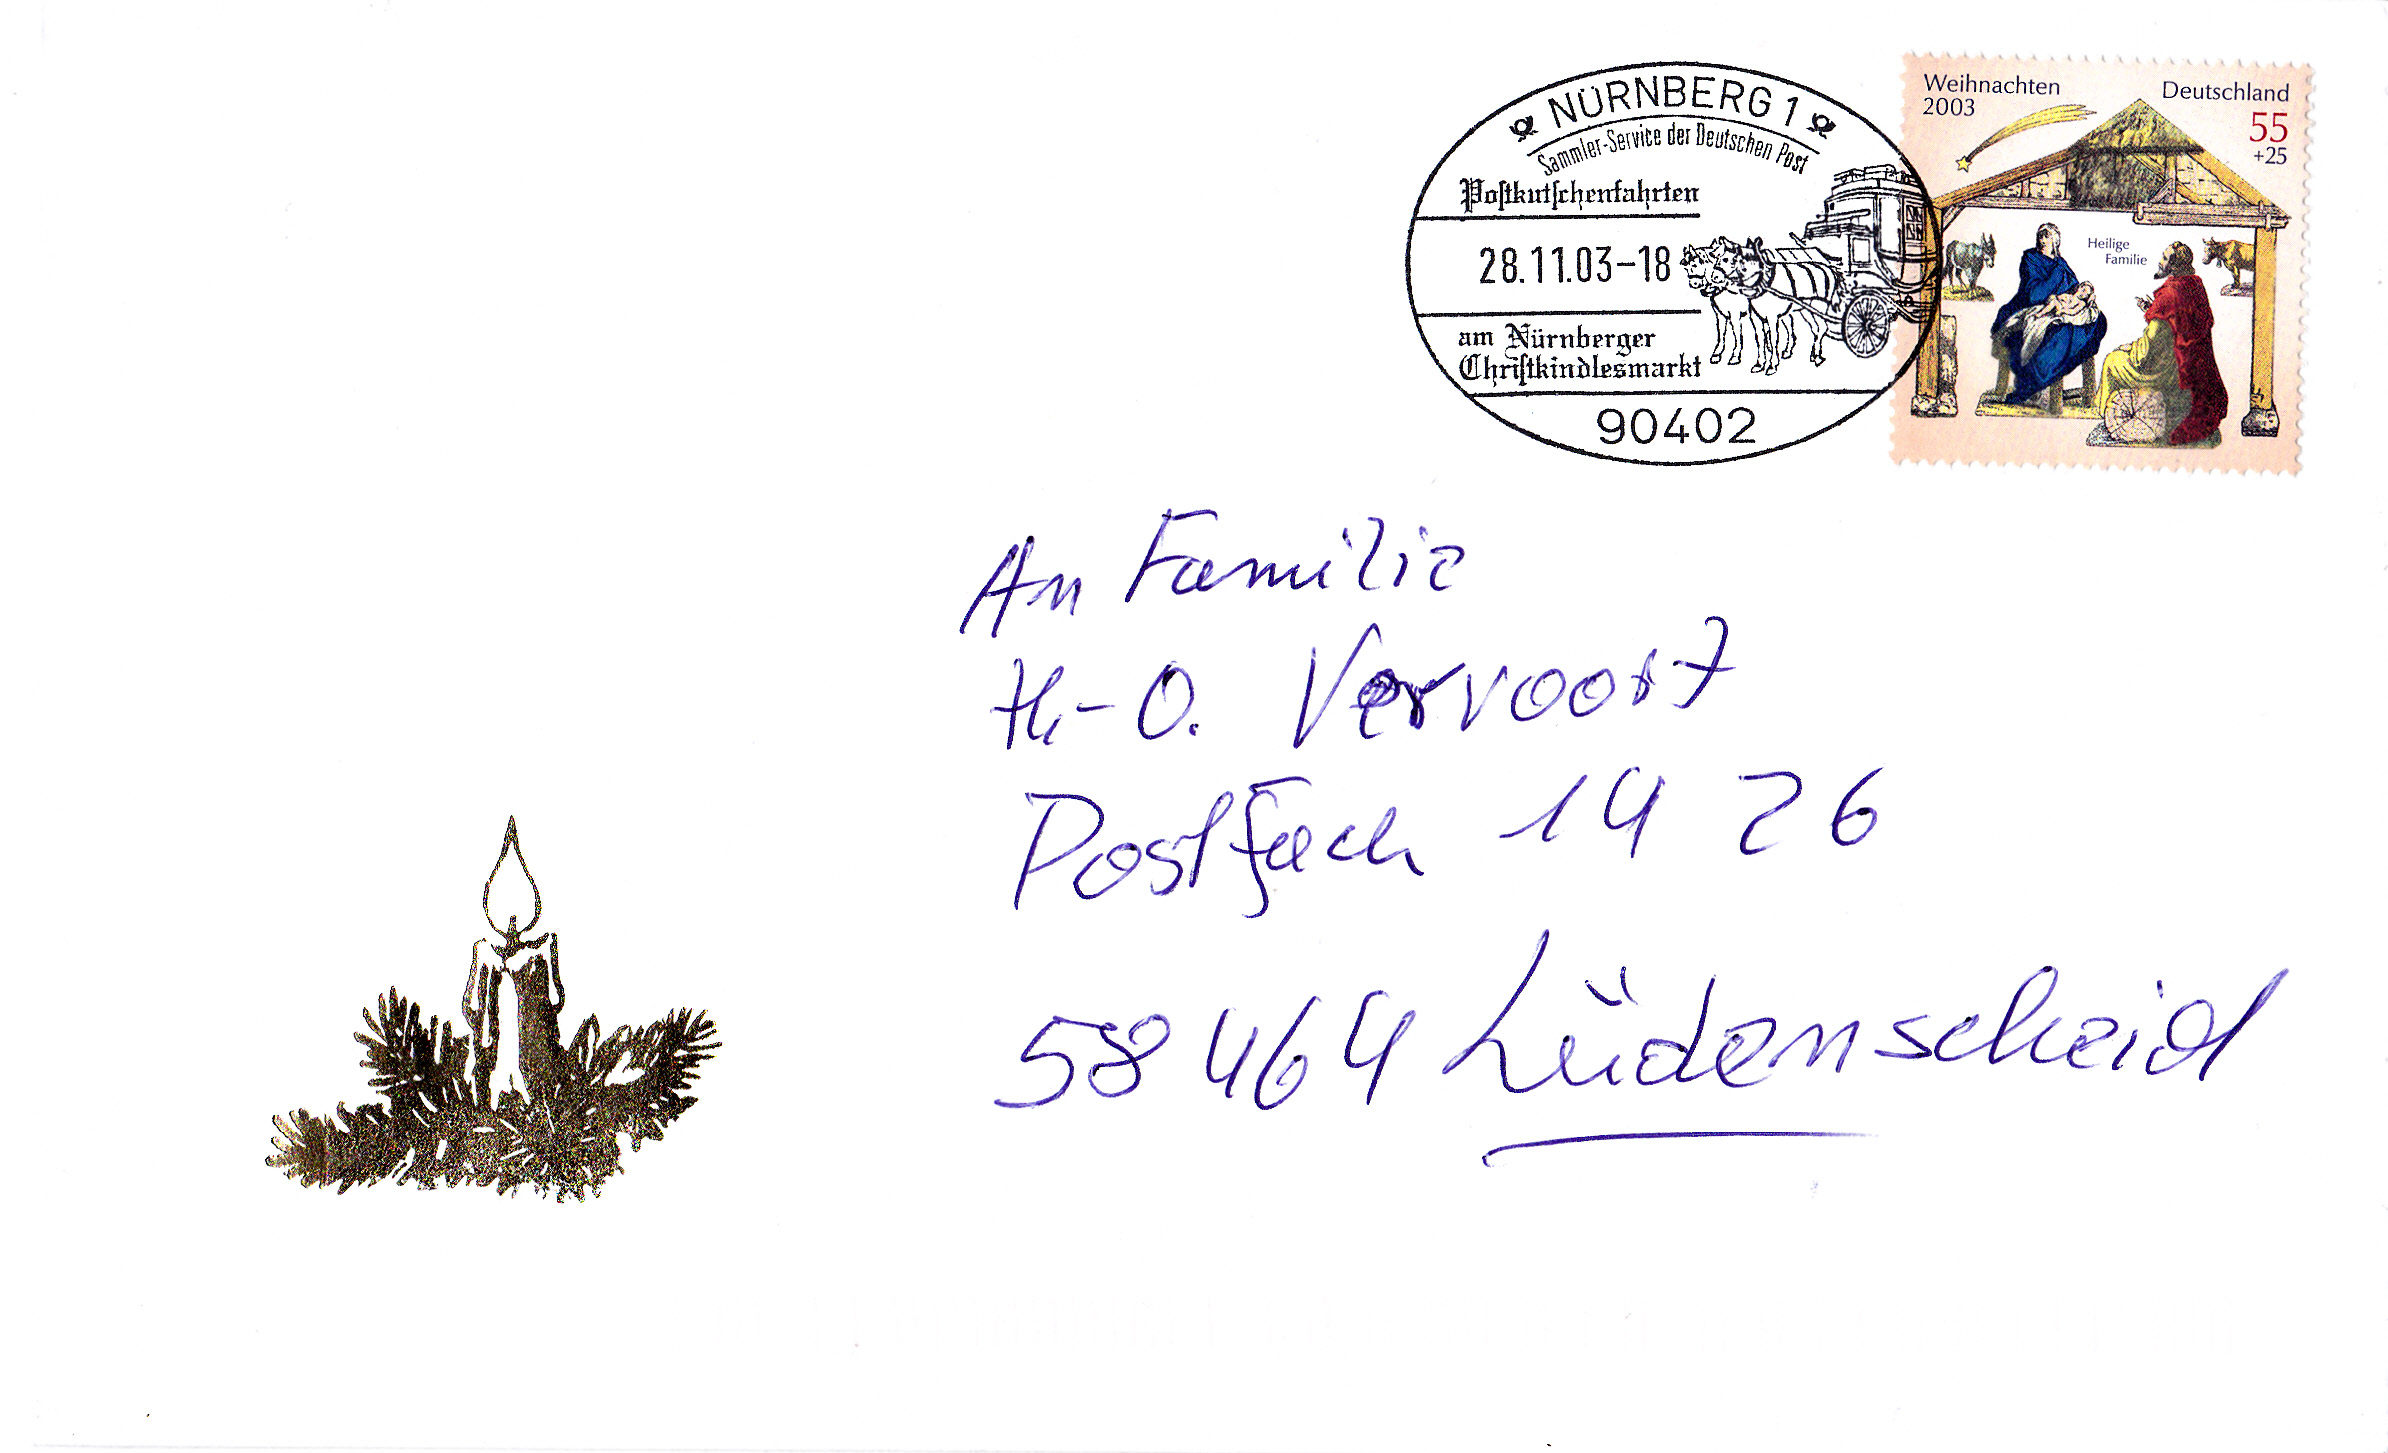 NÜRNBERG 1
Sammler-Service der Deutschen Post
Postkutschenfahrten
28.11.03-18
am Nürnberger
Christkindlesmarkt
90402
Weihnachten
2003
Deutschland
55
+25
Heilige
Familie
An Familie
H.-O. Vervoort
Postfach 14 26
58464 Lüdenscheid